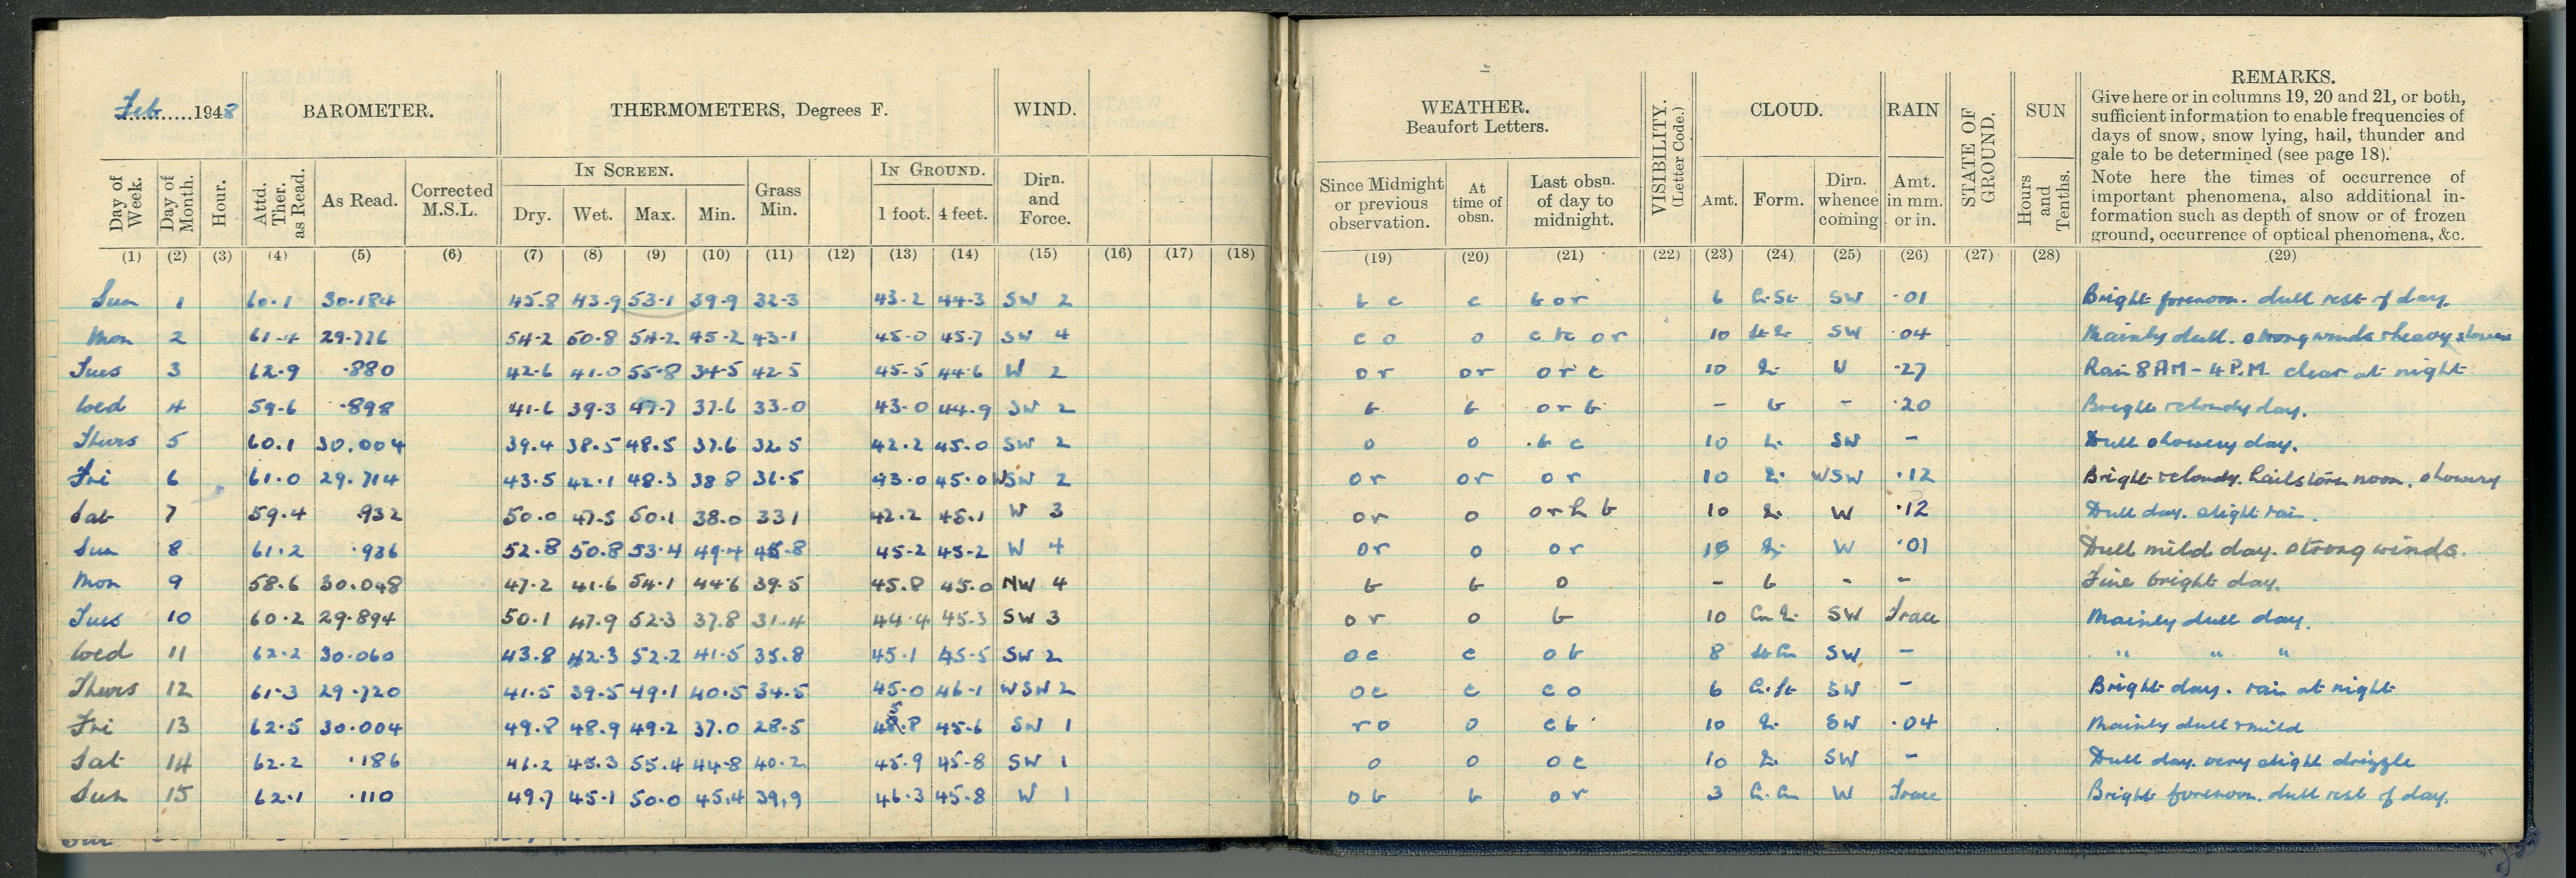 Feb 1948 BAROMETER. THERMOMETERS, Degrees F. WIND.
Day of Week. Day of Month. Hour. Attd. Ther. as Read. As Read. Corrected M.S.L. IN SCREEN. Dry. Wet. Max. Min. Grass Min. IN GROUND. 1 foot. 4 feet. Dirn. and Force.
(1) (2) (3) (4) (5) (6) (7) (8) (9) (10) (11) (12) (13) (14) (15) (16) (17) (18)
Sun 1 60.1 30.184 45.8 43.9 53.1 39.9 32.3 43.2 44.3 SW 2
Mon 2 61.4 29.776 54.2 50.8 54.2 45.2 43.1 45.0 45.7 SW 4
Tues 3 62.9 .880 42.6 41.0 55.8 34.5 42.5 45.5 44.6 W 2
Wed 4 59.6 .898 41.6 39.3 47.7 37.6 33.0 43.0 44.9 SW 2
Thurs 5 60.1 30.004 39.4 38.5 48.5 37.6 32.5 42.2 45.0 SW 2
Fri 6 61.0 29.714 43.5 42.1 48.3 38 8 36.5 43.0 45.0 WSW 2
Sat 7 59.4 .932 50.0 47.5 50.1 38.0 33 1 42.2 45.1 W 3
Sun 8 61.2 .936 52.8 50.8 53.4 49.4 45.8 45.2 45.2 W 4
Mon 9 58.6 30.048 47.2 41.6 54.1 44.6 39.5 45.8 45.0 NW 4
Tues 10 60.2 29.894 50.1 47.9 52.3 37.8 31.4 44.4 45.3 SW 3
Wed 11 62.2 30.060 43.8 42.3 52.2 41.5 35.8 45.1 45.5 SW 2
Thurs 12 61.3 29.720 41.5 39.5 49.1 40.5 34.5 45.0 46.1 WSW 2
Fri 13 62.5 30.004 49.8 48.9 49.2 37.0 28.5 45.8 45.6 SW 1
Sat 14 62.2 .186 46.2 45.3 55.4 44.8 40.2 45.9 45.8 SW 1
Sun 15 62.1 .110 49.7 45.1 50.0 45.4 39.9 46.3 45.8 W 1
WEATHER. Beaufort Letters. VISIBILITY. (Letter Code.) CLOUD. RAIN STATE OF GROUND. SUN REMARKS.
Since Midnight or previous observation. At time of obsn. Last obsn. of day to midnight. Amt. Form. Dirn. whence coming Amt. in mm. or in. Hours and Tenths.
Give here or in columns 19, 20 and 21, or both,
sufficient information to enable frequencies of
days of snow, snow lying, hail, thunder and
gale to be determined (see page 18).
Note here the times of occurrence of
important phenomena, also additional in-
formation such as depth of snow or of frozen
ground, occurrence of optical phenomena, &c.
(19) (20) (21) (22) (23) (24) (25) (26) (27) (28) (29)
b c c b o r 6 SW .01 Bright forenoon. dull rest of day.
c o o c bc o r 10 SW .04 Mainly dull. strong winds & heavy showers
o r o r o r c 10 W .27 Rain 8 AM - 4 P.M. clear at night
b b o r b - b - .20 Bright & cloudy day.
o o .b c 10 SW - Dull showery day.
o r o r o r 10 WSW .12 Bright & cloudy. hailstorm noon. showery
o r o o r h b 10 W .12 Dull day. slight rain.
o r o o r 10 W .01 Dull mild day. strong winds.
b b o - b - - Fine bright day.
o r o b 10 SW Trace Mainly dull day.
o c c o b 8 SW - " " "
o c c c o 6 SW - Bright day. rain at night
r o o c b 10 SW .04 Mainly dull & mild
o o o c 10 SW - Dull day. very slight drizzle
o b b o r 3 W Trace Bright forenoon. dull rest of day.